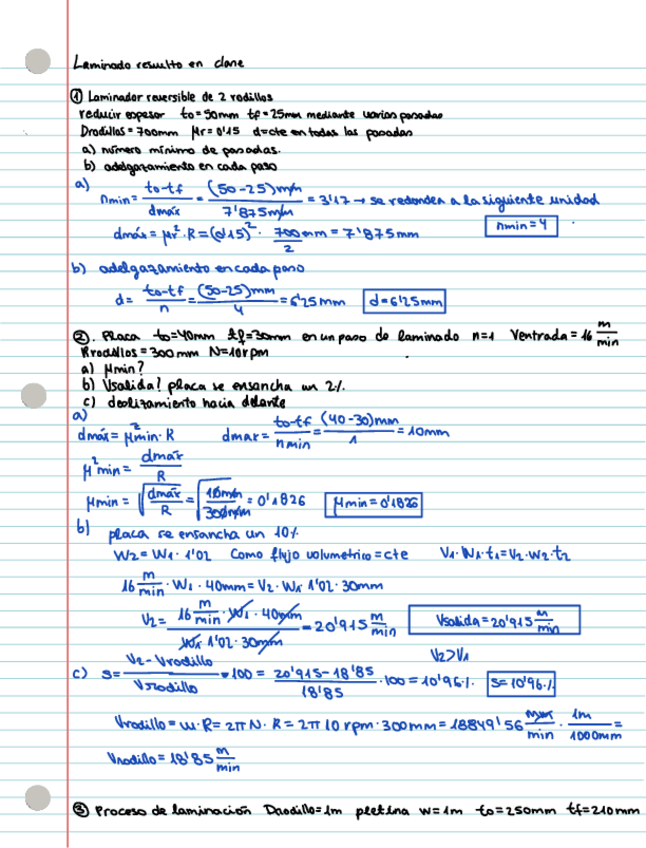 Laminado resuelto en clase
① Laminador reversible de 2 rodillos
reducir espesor to=50mm tf=25mm mediante varias pasadas
Drodillos=700mm μr=0'15 d=cte en todas las pasadas
a) número mínimo de pasadas.
b) adelgazamiento en cada paso
a) nmin= (to-tf)/dmáx = (50-25)mm/7'875mm = 3'17 → se redondea a la siguiente unidad
nmin=4
dmáx=μr²·R=(0'15)²·700mm/2=7'875mm
b) adelgazamiento en cada paso
d= (to-tf)/n = (50-25)mm/4 = 6'25mm d=6'25mm
②. Placa to=40mm tf=30mm en un paso de laminado n=1 Ventrada=16 m/min
Rrodillos=300mm N=10rpm
a) μmin?
b) Vsalida? placa se ensancha un 2%.
c) deslizamiento hacia delante
a)
dmáx=μ²min·R dmax= (to-tf)/nmin = (40-30)mm/1 = 10mm
μ²min= dmáx/R
μmin= √(dmáx/R) = √(10mm/300mm) = 0'1826 μmin=0'1826
b) placa se ensancha un 10%
W2=W1·1'02 Como flujo volumetrico=cte V1·W1·t1=V2·W2·t2
16 m/min·W1·40mm=V2·W1·1'02·30mm
V2= (16 m/min·W1·40mm)/(W1·1'02·30mm) = 20'915 m/min Vsalida=20'915 m/min
V2>V1
c) s= (V2-Vrodillo)/Vrodillo ·100= (20'915-18'85)/18'85 ·100=10'96% s=10'96%
Vrodillo=w·R=2πN·R=2π10rpm·300mm=18849'56 mm/min · 1m/1000mm =
Vrodillo=18'85 m/min
③ Proceso de laminación Drodillo=1m pletina w=1m to=250mm tf=210mm